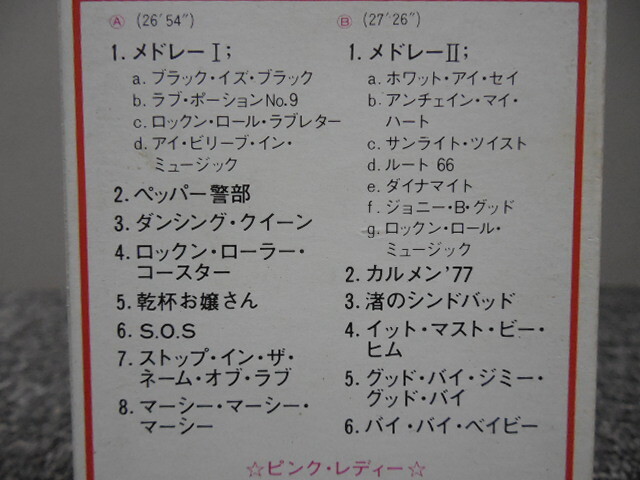 Ⓐ (26′54″)
1. メドレーⅠ;
a. ブラック・イズ・ブラック
b. ラブ・ポーションNo.9
c. ロックン・ロール・ラブレター
d. アイ・ビリーブ・イン・
ミュージック
2. ペッパー警部
3. ダンシング・クイーン
4. ロックン・ローラー・
コースター
5. 乾杯お嬢さん
6. S.O.S
7. ストップ・イン・ザ・
ネーム・オブ・ラブ
8. マーシー・マーシー・
マーシー
Ⓑ (27′26″)
1. メドレーⅡ;
a. ホワット・アイ・セイ
b. アンチェイン・マイ・
ハート
c. サンライト・ツイスト
d. ルート 66
e. ダイナマイト
f. ジョニー・B・グッド
g. ロックン・ロール・
ミュージック
2. カルメン'77
3. 渚のシンドバッド
4. イット・マスト・ビー・
ヒム
5. グッド・バイ・ジミー・
グッド・バイ
6. バイ・バイ・ベイビー
☆ピンク・レディー☆